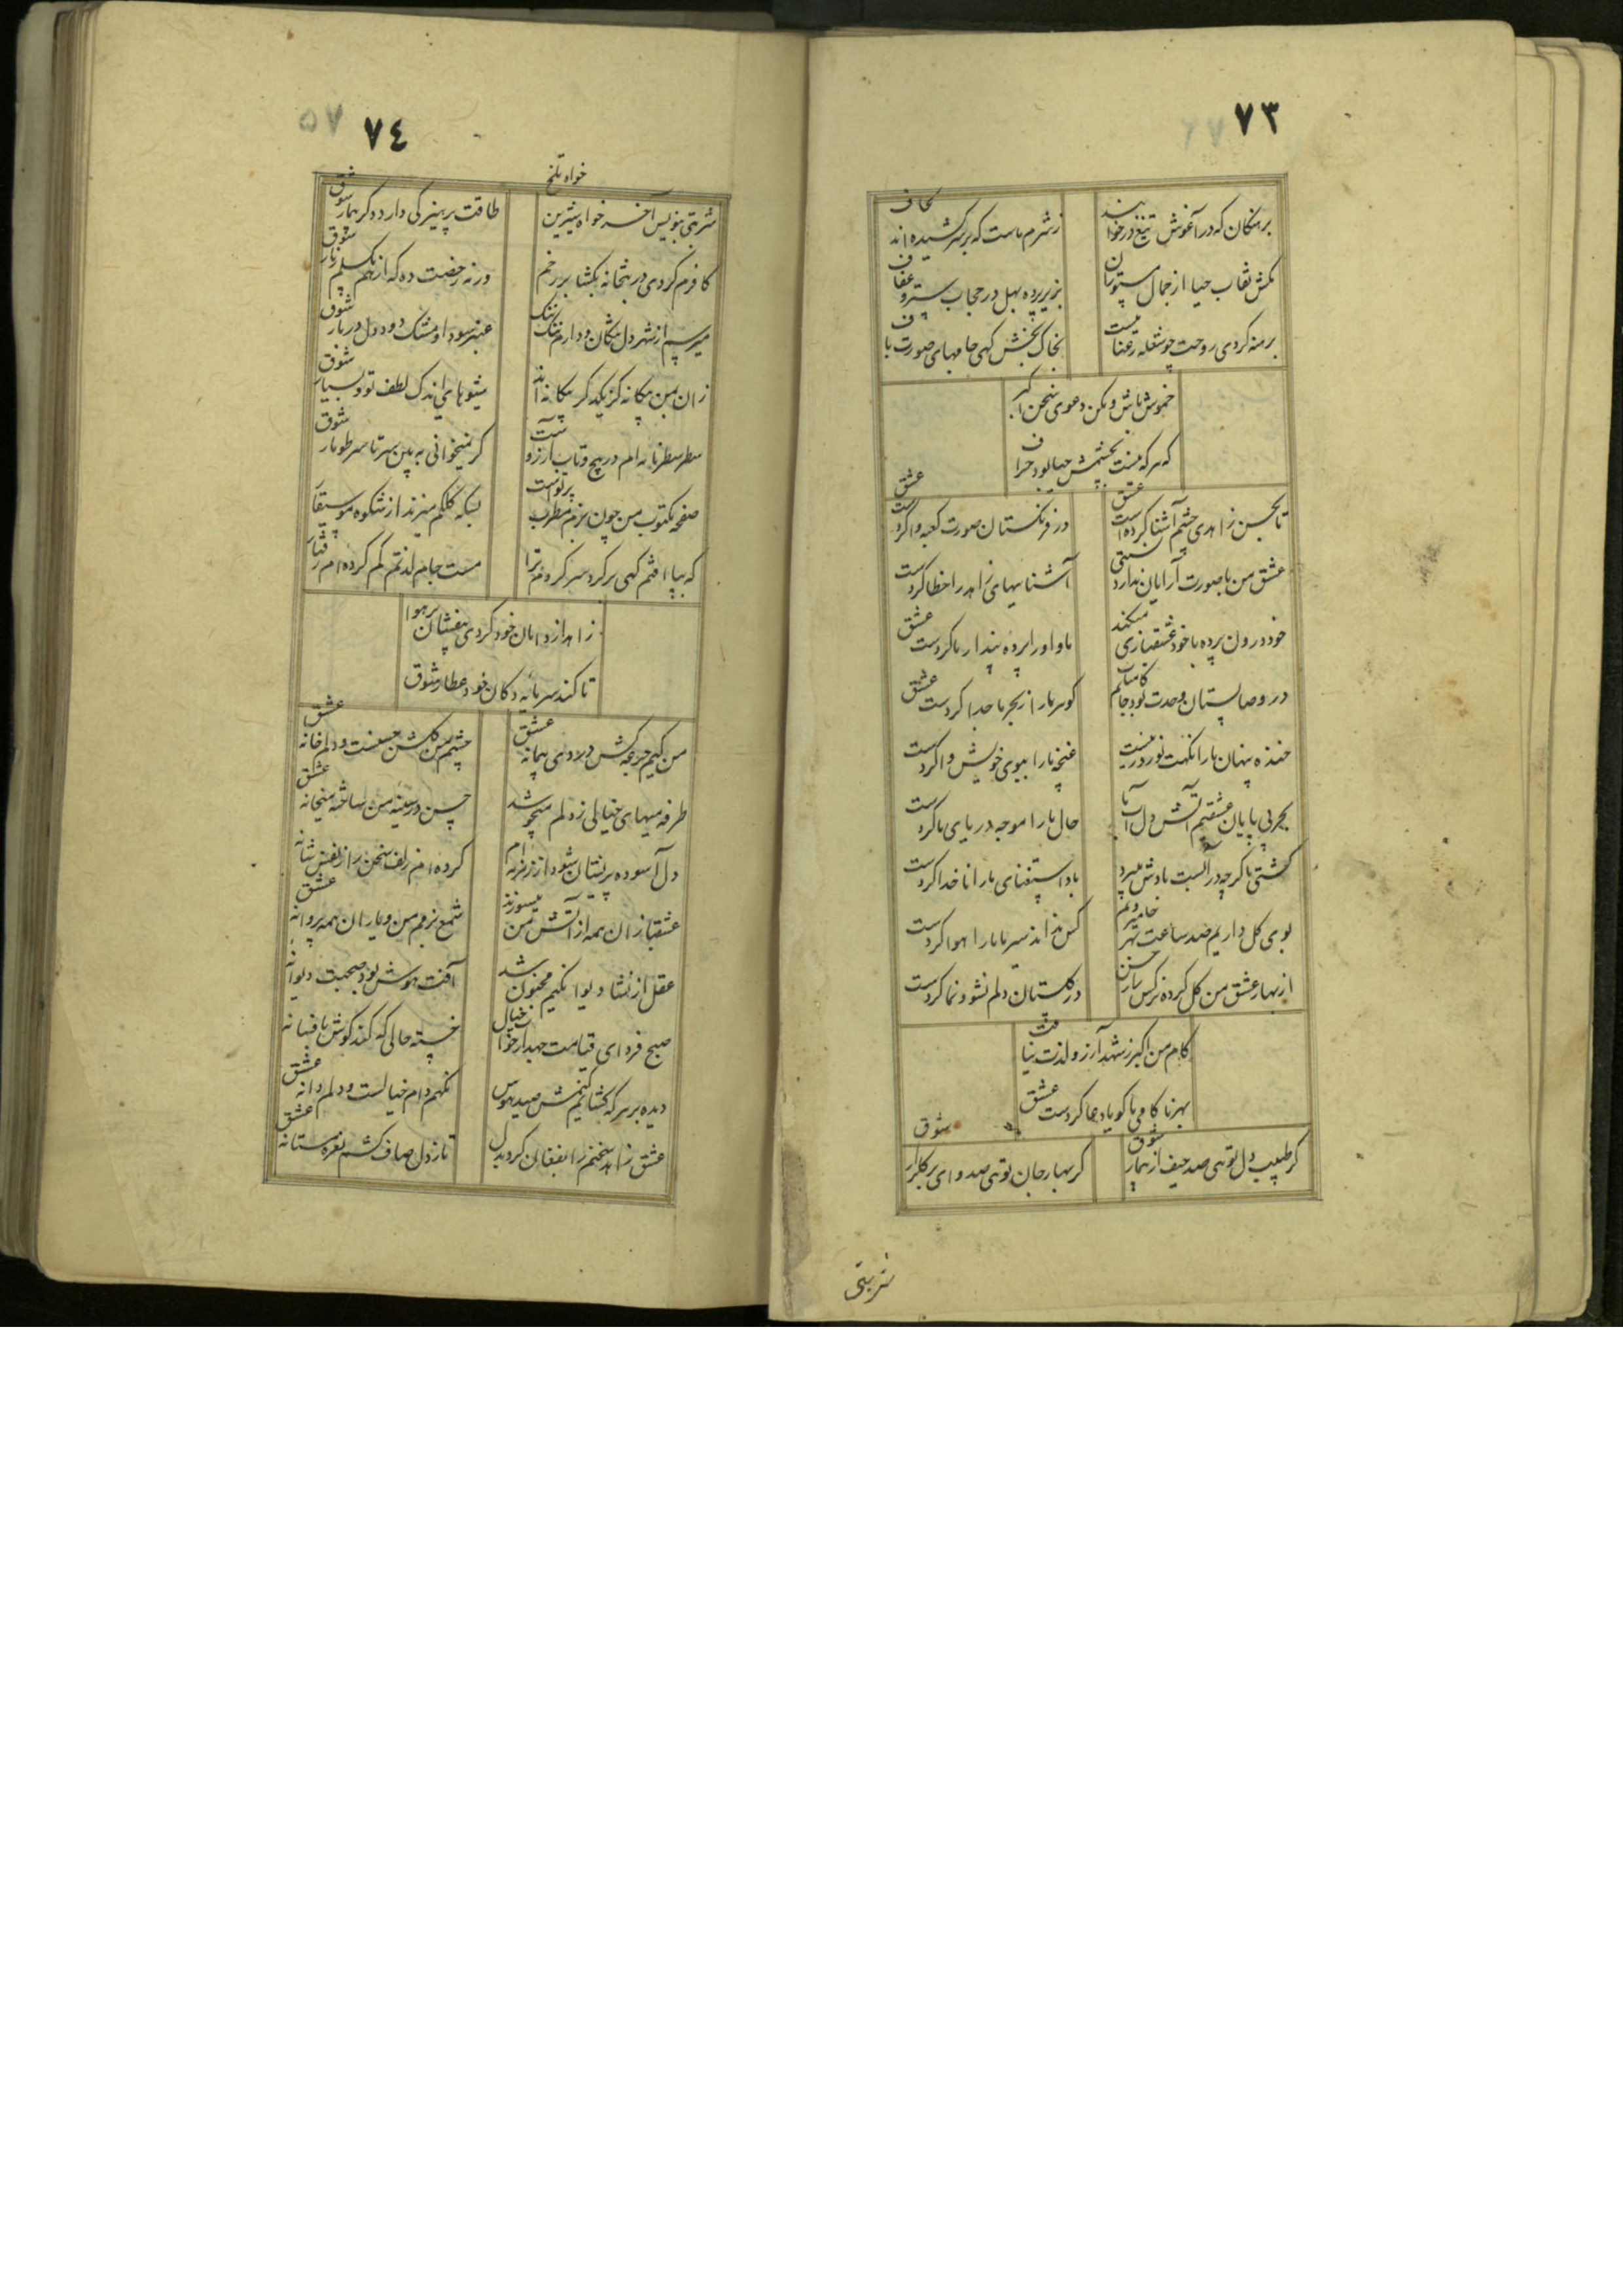 ۷۳
برهنگان که در آغوش تیغ در خوابند
ز شرم ماست که بر سر کشیده اند لحاف
مکش نقاب حیا از جمال مستوران
بزیر پرده بهل در حجاب ستر و عفاف
برهنه کردی روحت چو شعله رعنا نیست
بخاک بخش کهی جامهای صورت باف
خموش باش و مکن دعوی سخن اکبر
که هر که نیست بچشمش حیا بود حراف
تا بحسن زاهدی چشم آشنا کرده است عشق
در فرنگستان صورت کعبه وا کردست عشق
عشق من با صورت آرایان ندارد نسبتی
آشناییهای زاهد را خطا کردست
خود درون پرده با خود عشقبازی میکند
ما و او را پرده پندار ما کردست عشق
در وصالستان وحدت بود جانم کامیاب
گوهر ما را از بحر ما جدا کردست عشق
خنده پنهان ما را نکهت نوروز نیست
غنچه ما را ببوی خویش وا کردست
بحر بی پایان عشقیم آتش دل آب ما
حال ما را موجه دریای ما کردست
کشتی ما گرچه در الست بادش میبرد
باد استغنای ما را ناخدا کردست
بوی گل داریم صد ساعت بهر جا میرویم
کس نداند سیر ما ما را هوا کردست
از بهار عشق من گل کرده نرگس زار حسن
در گلستان دلم نشو و نما کردست
کام من اکبر ز شهد آرزو لذت نیافت
بهر ناکامی ما گویا دعا کردست عشق
گر طبیب دل توهی صد حیف از بیمار شوق
گر بهار جان توهی صد وای بر گلزار شوق
شربتی
۷٤
شربتی بنویس آخر خواه شیرین خواه تلخ
طاقت پرهیز کی دارد دگر بیمار شوق
کافرم کردی در بتخانه بگشا بر رخم
ورنه رخصت ده که از هم بکسلم زنار شوق
میرسم از شهر دل مکان و دارم تنک تنک
عنبر سودا و مشک دود دل در بار شوق
زان من بیگانه گر یکدگر بیگانه اند
شیوهای اندک لطف تو و بسیار شوق
سطر سطر نامه ام در پیچ و تاب آرزوست
گر نمیخوانی به بین سر تا سر طومار شوق
صفحه مکتوب من چون بزم مطرب پر نواست
بسکه کلکم میزند از شکوه موسیقار
که بپا افتم کهی بر گرد سر گردم ترا
مست جام لذتم گم کرده ام رفتار
زاهد از دامان خود گردی بیفشان بر هوا
تا کند سرمایه دکان خود عطار شوق
من کیم جرعه کش دردی پیمانه عشق
چشم من گلشن حسنست و دلم خانه عشق
طرفه میهای خیالی ز دلم میجوشد
حسن در سینه من ساخته میخانه عشق
دل آسوده پریشان شود از زمزمه ام
کرده ام زلف سخن را ز نفس شانه
عشقبازان همه از آتش من میسوزند
شمع بزمم من و یاران همه پروانه عشق
عقل از نشا دیوانگیم مجنون شد
آفت هوش بود صحبت دیوانه
صبح فردای قیامت جهد از خواب خیال
خسته حالی که کند گوش بافسانه
دیده بر هر که گشائیم کنمش صید هوس
نگهم دام خیالست و دلم دانه عشق
عشق زاهد سخنم را بفغان کرد بدل
تا ز دل صاف کشم نعره مستانه عشق